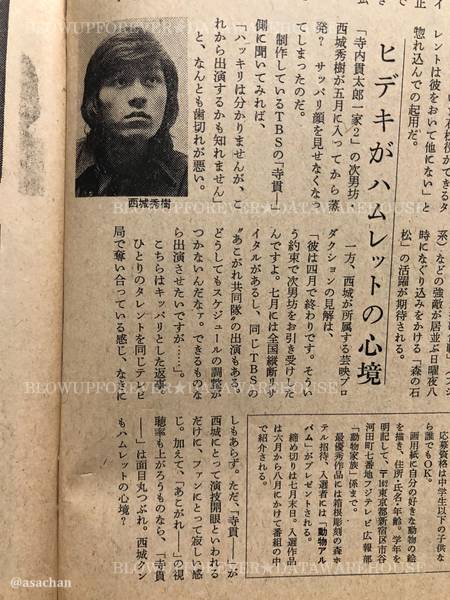 レントは彼をおいて他にない」と
惚れ込んでの起用だ。
ヒデキがハムレットの心境
「寺内貫太郎一家2」の次男坊・
西城秀樹が五月に入ってから蒸
発？　サッパリ顔を見せなくなっ
てしまったのだ。
制作しているTBSの「寺貫」
側に聞いてみれば、
「ハッキリは分かりませんが、こ
れから出演するかも知れません」
と、なんとも歯切れが悪い。
西城秀樹
系）などの強敵が居並ぶ日曜夜八
時になぐり込みをかける「森の石
松」の活躍が期待される。
一方、西城が所属する芸映プロ
ダクションの見解は、
「彼は四月で終わりです。そうい
う約束で次男坊をお引き受けした
んですよ。七月には全国縦断リサ
イタルがあるし、同じTBSの
“あこがれ共同隊”の出演もある。
どうしてもスケジュールの調整が
つかないんだなァ。できるものな
ら出演させたいですが……」。
こちらはキッパリとした返事。
ひとりのタレントを同じテレビ
局で奪い合っている感じ、なきに
しもあらず。ただ、「寺貫――」が
西城にとって演技開眼といわれる
だけに、ファンにとって寂しい感
じ。加えて、「あこがれ――」の視
聴率も上がろうものなら、「寺貫
――」は面目丸つぶれ。西城クン
もハムレットの心境？
応募資格は中学生以下の子供な
ら誰でもOK。
画用紙に自分の好きな動物の絵
を描き、住所・氏名・年齢・学年を
明記して、〒162東京都新宿区市谷
河田町七番地フジテレビ広報部
「動物家族」係まで。
最優秀作品には箱根彫刻の森ホ
テル招待、入選者には「動物アル
バム」がプレゼントされる。
締め切りは七月末日。入選作品
は六月から八月にかけて番組の中
で紹介される。
BLOWUPFOREVER★DATAWAREHOUSE
BLOWUPFOREVER★DATAWAREHOUSE
BLOWUPFOREVER★DATAWAREHOUSE
@asachan